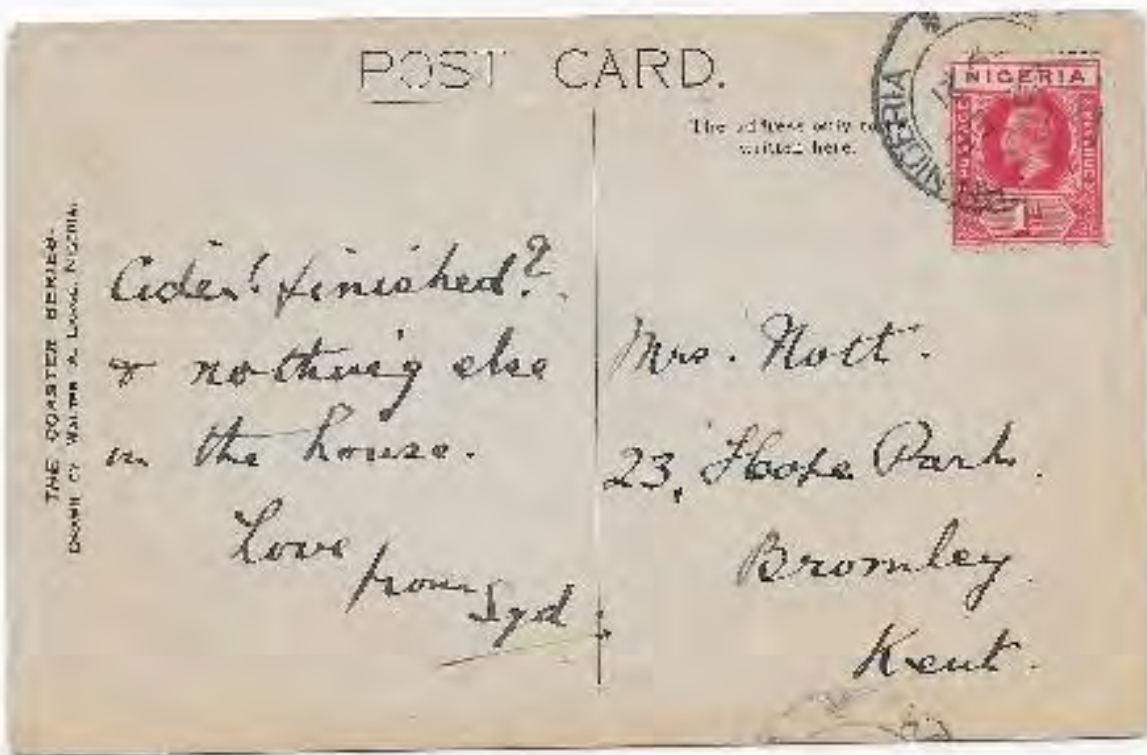 POST CARD.
The address only to be
written here.
NIGERIA
NIGERIA
POSTAGE
REVENUE
1d
THE COASTER SERIES.
DRAWN BY WALTER A. NIGERIA.
Cider! finished?
& nothing else
in the house.
Love
from Syd
Mrs. Nott.
23, Hope Park.
Bromley
Kent.